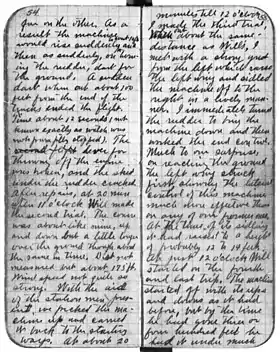 54
far on the other. As a
result the machine would
rise suddenly and
then as suddenly, on turn-
ing the rudder, dart for
the ground. A sudden
dart when out about 100
feet from the end of the
tracks ended the flight.
Time about 12 seconds (not
known exactly as watch was
not promptly stopped). The
flight lever for
throwing off the engine
was broken, and the skid
under the rudder cracked.
After repairs, at 20 min.
after 11 o'clock Will made
the second trial. The course
was about like mine, up
and down but a little longer
over the ground though about
the same in time. Dist. not
measured but about 175 ft.
Wind speed not quite so
strong. With the aid
of the station men pres-
ent, we picked the ma-
chine up and carried
it back to the starting
ways. At about 20
minutes till 12 o'clock
I made the third trial.
When out about the same
distance as Will's, I
met with a strong gust
from the left which raised
the left wing and sidled
the machine off to the
right in a lively man-
ner. I immediately turned
the rudder to bring the
machine down and then
worked the end control.
Much to our surprise
on reaching the ground
the left wing struck
first, showing the lateral
control of this machine
much more effective than
on any of our former ones.
At the time of its sidling
it had raised to a height
of probably 12 to 14 feet.
At just 12 o'clock Will
started on the fourth
and last trip. The machine
started off with its ups
and downs as it had
before, but by the time
he had gone three or
four hundred feet he
had it under much